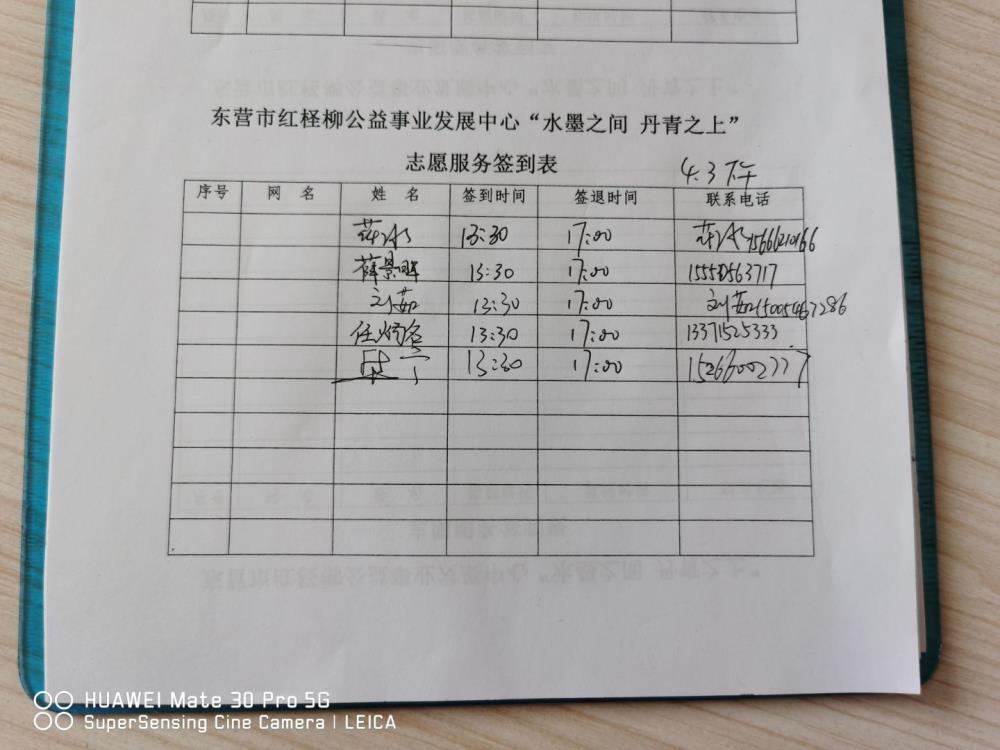 东营市红柽柳公益事业发展中心“水墨之间 丹青之上”
志愿服务签到表
4.3 下午
序号 网 名 姓 名 签到时间 签退时间 联系电话
13:30 17:00
薛景晖 13:30 17:00 15550563717
刘茹 13:30 17:00 刘茹15005467286
任炳谷 13:30 17:00 13371525333
13:30 17:00 15266002777
HUAWEI Mate 30 Pro 5G
SuperSensing Cine Camera | LEICA